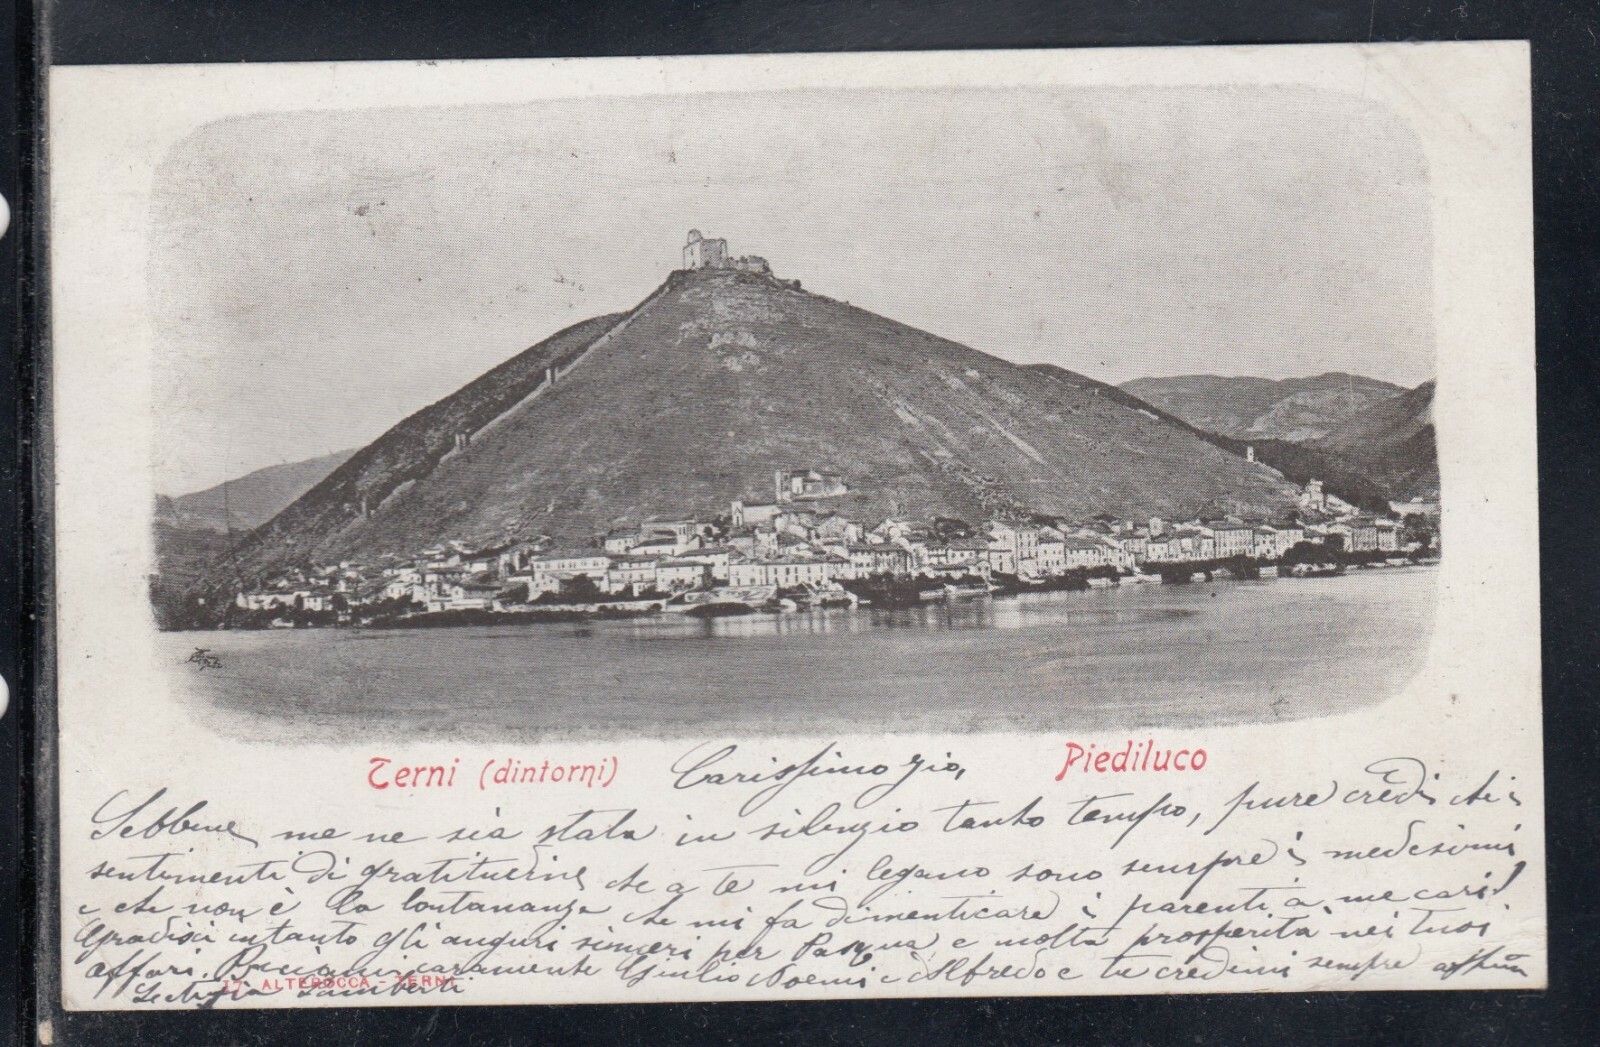 Terni (dintorni)
Carissimo zio,
Piediluco
Sebbene me ne sia stata in silenzio tanto tempo, pure credi che i
sentimenti di gratitudine che a te mi legano sono sempre i medesimi
e che non è la lontananza che mi fa dimenticare i parenti a me cari!
Gradisci intanto gli auguri sinceri per Pasqua e molta prosperità nei tuoi
affari. Baciami caramente Giulio Noemi e Alfredo e tu credimi sempre
17 ALTEROCCA - TERNI
Letizia Lamberti